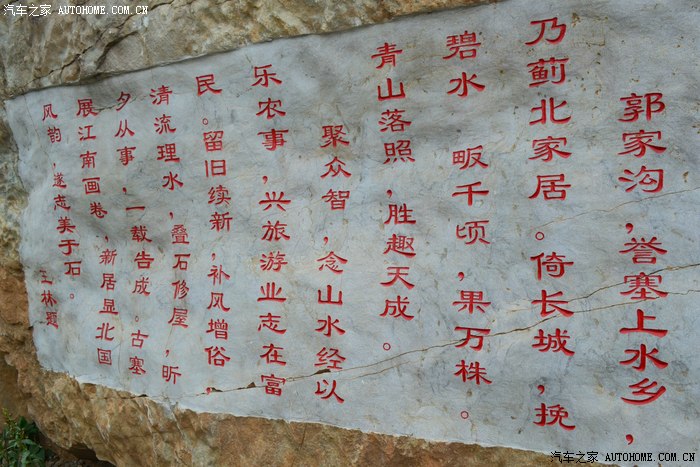 汽车之家 AUTOHOME.COM.CN
郭家沟，誉塞上水乡，
乃蓟北家居。倚长城，挽
碧水　畈千顷，果万株。
青山落照，胜趣天成。
聚众智，念山水经以
乐农事，兴旅游业志在富
民。留旧续新，补风增俗，
清流理水，叠石修屋，昕
夕从事，一载告成。古塞
展江南画卷，新居显北国
风韵，遂志美于石。
王林题
汽车之家 AUTOHOME.COM.CN